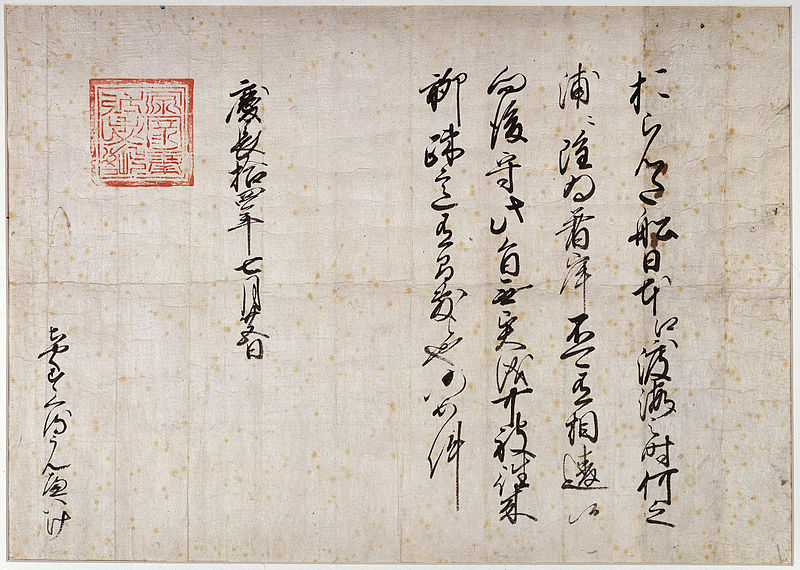 おらんだ船日本江渡海之時何之
浦ニ雖為着岸不可有相違候
向後守此旨無異儀可被往来
聊疎意有間敷候也仍如件
慶長拾四年七月廿五日
ちやくすくるうんへいけ
源家康忠恕